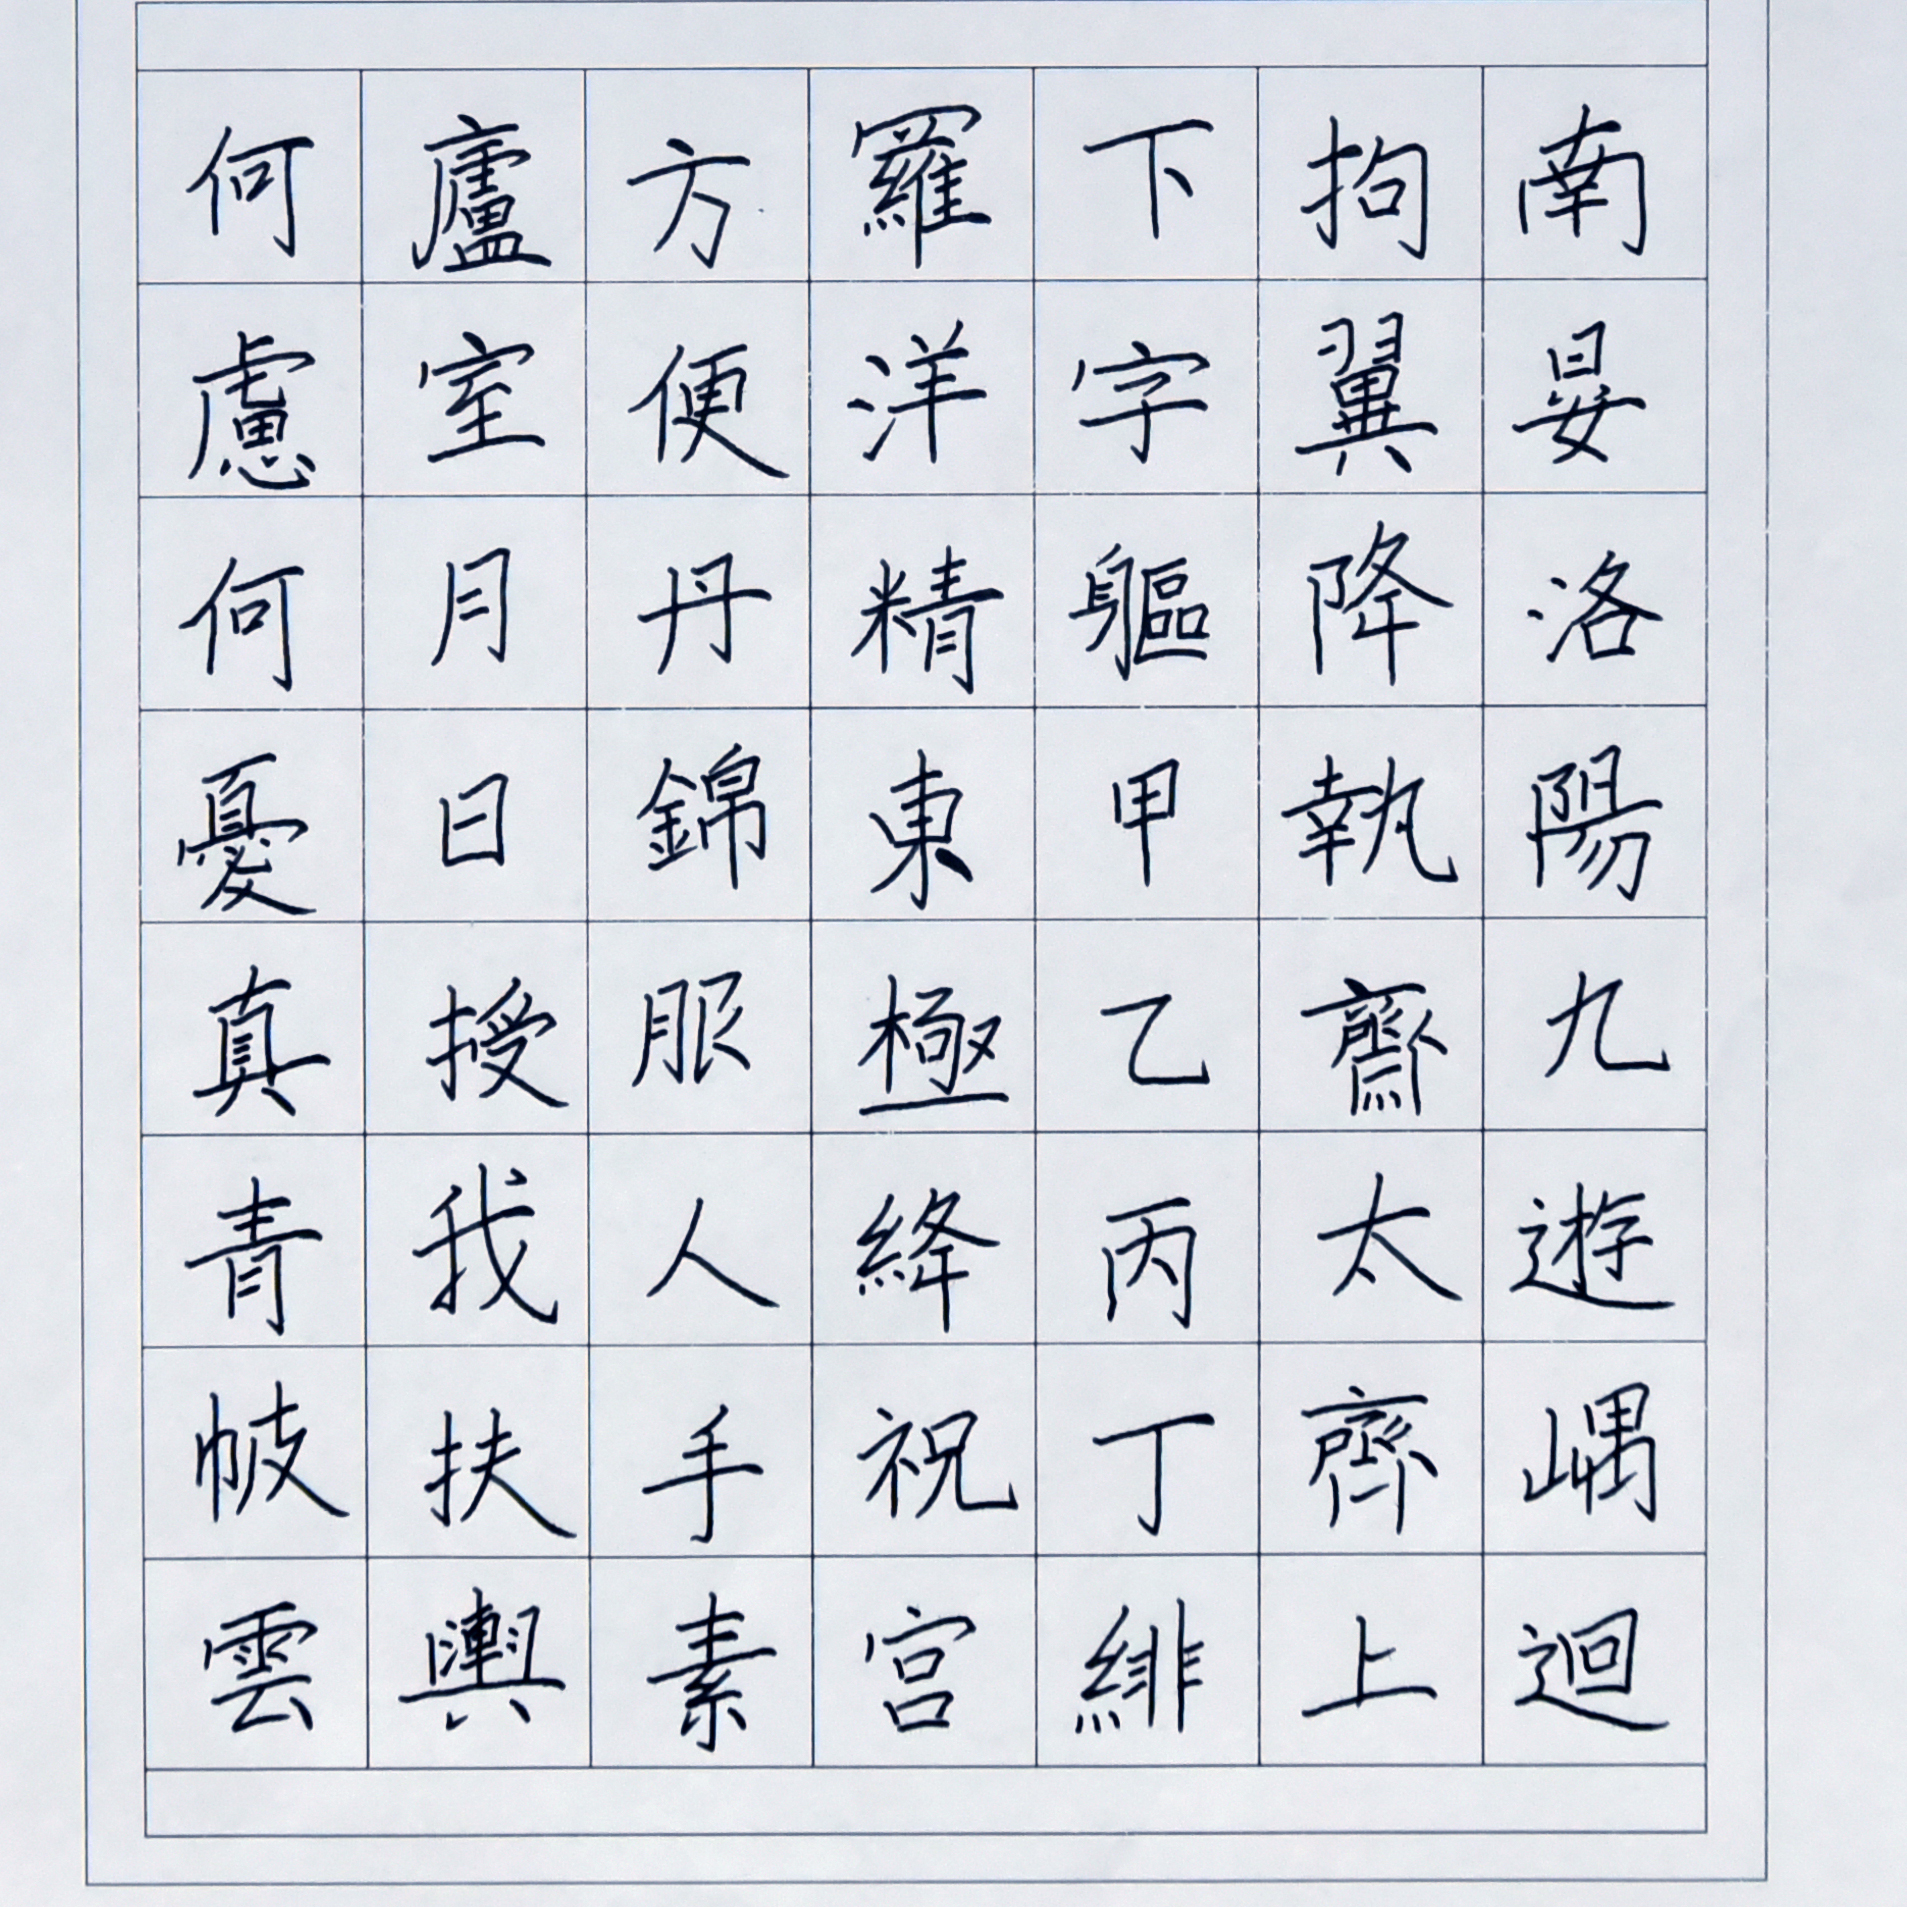 南晏洛陽九遊嵎迴
拘翼降執齋太齊上
下字軀甲乙丙丁緋
羅洋精東極絳祝宫
方便丹錦服人手素
廬室月日授我扶輿
何慮何憂真青帔雲